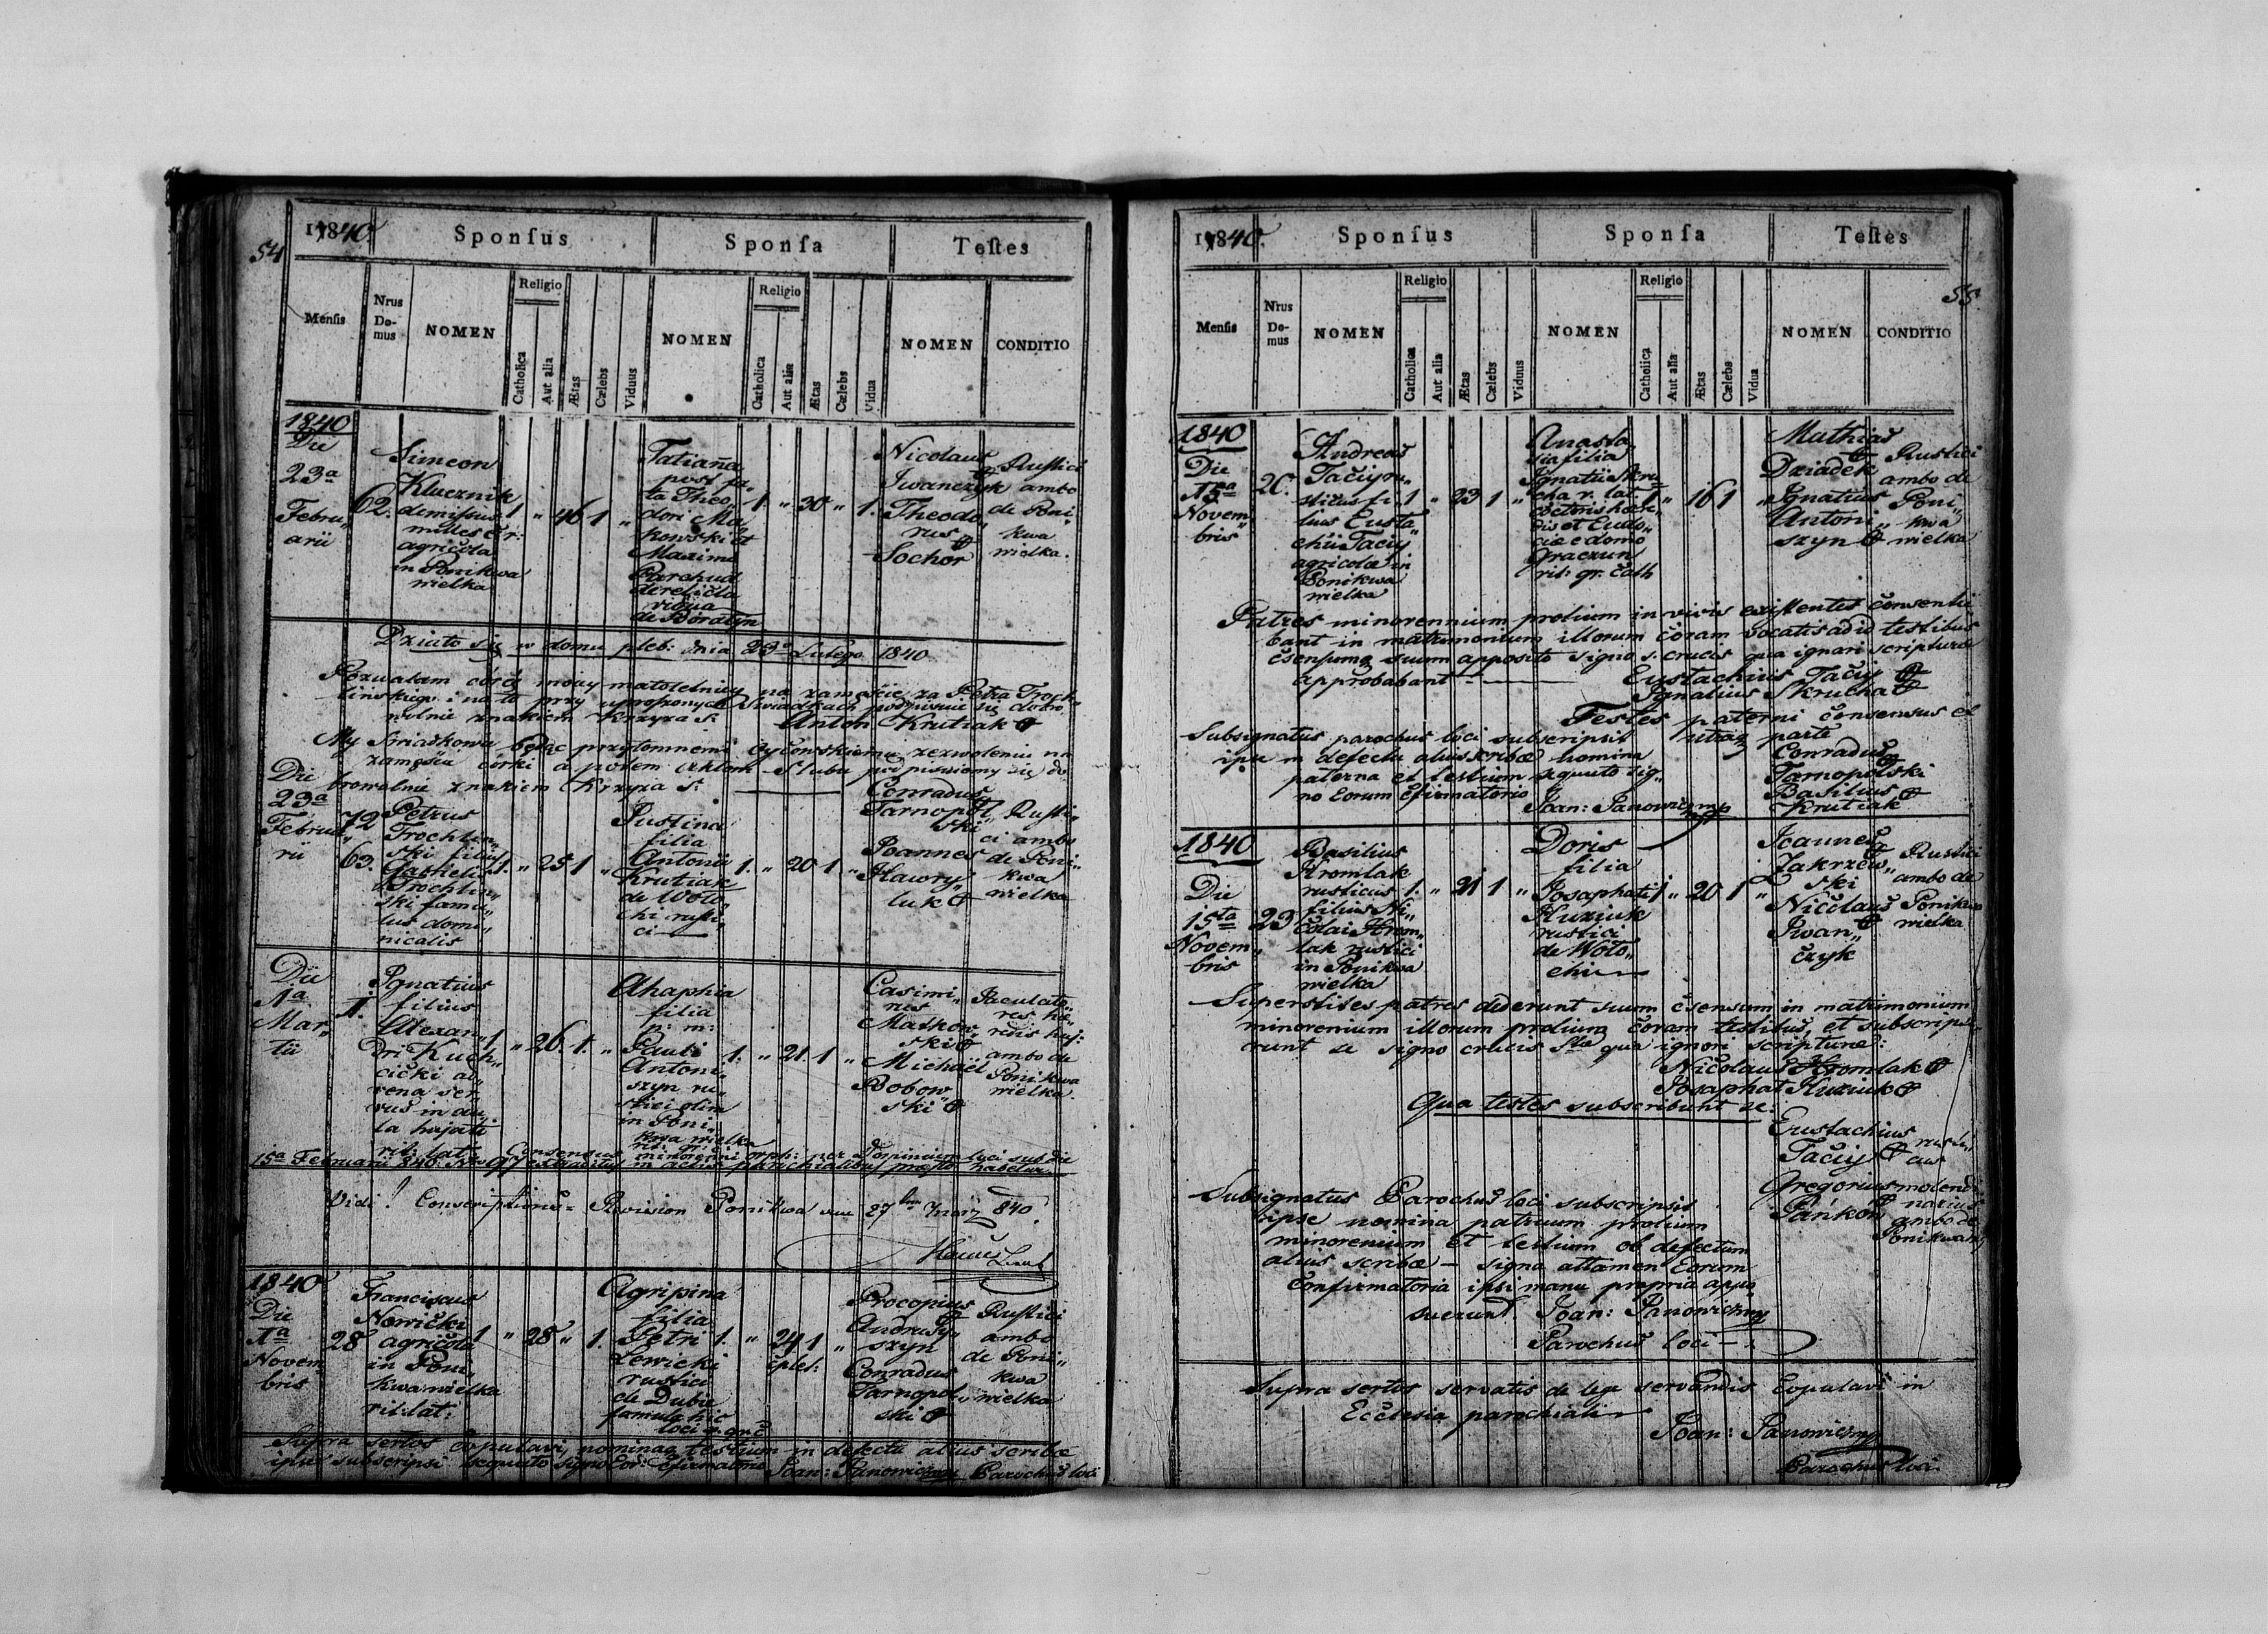 54
1840.
Sponſus
Sponſa
Teſtes
Menſis
Nrus Do-mus
NOMEN
Religio
Catholica
Aut alia
Ætas
Cælebs
Viduus
NOMEN
Religio
Catholica
Aut alia
Ætas
Cælebs
Vidua
NOMEN
CONDITIO
1840
Die
23a
Febru„
arii
62.
Simeon
Klucznik
demissus
miles
agricola
in Ponikwa
wielka
1 „ 46 1 „
Tatiana
post fa„
ta Theo„
dori Ma„
kowski et
Maxime
Parchud
derelicta
vidua
de Boratyn
1 „ 30 „ 1.
Nicolaus
Iwanczyk
Theodo„
rus
Sochor
Rustici
ambo
de Poni„
kwa
wielka.
Działo się w domu pleb: dnia 23o Lutego 1840
Pozwalam córce moiej małoletniey na zamęście za Petra Troch„
linskiego i na to przy uproszonych Swiadkach podpisuie się dobro„
wolnie znakiem Krzyża S.
Anton Krutiak
My Swiadkowie będąc przytomnemi oycowskiemu zezwoleniu na
zamęście córki a potem aktom Slubu podpisuiemy się do
browolnie znakiem Krzyża S:
Die
23a
Februa„
rii
72
63.
Petrus
Trochlin„
ski filius
Trochlin„
ski famu„
lus domi„
nicalis
1. „ 25 1 „
Justina
filia
Antonii
Krutiak
de Woło„
chi rusti„
ci
1. „ 20 1 „
Conradus
Tarnopol„
ski
Joannes
Hawry„
luk
Rusti„
ci ambo
de Poni„
kwa
wielka
Die
1a
Mar„
tii
1.
Ignatius
filius
Alexan„
dri Kuch„
cicki ad„
vena ser„
vus in au„
la hujati
rit: lat.
1. „ 26. 1. „
Ahaphia
filia
p: m:
Pauli
Antoni„
szyn ru„
stici olim
in Poni„
kwa wielka
1. „ 21 1 „
Casimi„
rus
Matkow
ski
Michaël
Bobow„
ski
Jaculato„
res ho„
redis huj:
ambo de
Ponikwa
wielka.
Consensus minorenni orph: per Dominium loci sub die
15a Februarii 840. Nro 97 extraditus in actis parochialibus præsto habetur
Vidi! Conscriptions- Revision Ponikwa am 27ten März 840.
1840
Die
1a
Novem„
bris
28
Franciscus
Nowicki
agricola
in Poni„
kwa wielka
rit: lat:
1 „ 28 „ 1.
Agripina
filia
Petri
Lewicki
rustici
de Dubie
famula hic
loci r: gr. c
1. „ 24 1 „
cplet:
Procopius
Andrusy„
szyn
Conradus
Tarnopol„
ski
Rustici
ambo
de Poni„
kwa
wielka
Supra sertos copulavi, nominaq testium in defectu alius scribæ
ipse subscripsi sequuto signo Eor: cfirmatorio Joan: Janowicz mp Parochus loci
1840.
55.
Sponſus
Sponſa
Teſtes
Menſis
Nrus Do-mus
NOMEN
Religio
Catholica
Aut alia
Ætas
Cælebs
Viduus
NOMEN
Religio
Catholica
Aut alia
Ætas
Cælebs
Vidua
NOMEN
CONDITIO
1840
Die
15a
Novem„
bris
20.
Andreas
Taciy ru„
sticus fi„
lius Eusta„
chii Taciy
agricolæ in
Ponikwa
wielka
1. „ 23 1 „
Anasta„
sia filia
Ignatii Skru
cha r. lat.
coctoris hore„
dis et Eudo„
ciæ e domo
Graczun
rit: gr. cath
1 „ 16 1 „
Mathias
Dziadek
Ignatius
Antoni„
szyn
Rustici
ambo de
Poni„
kwa
wielka
Patres minorennium prolium in vivis existentes consenti
bant in matrimonium illorum coram vocatis ad id testibus
csensumq suum apposito signo s. crucis qua ignari scripturæ
approbabant
Eustachius Taciy
Ignatius Skrucha
Testes paterni consensus et
utraq parte
Subsignatus parochus loci subscripsit
ipse in defectu alius scribæ nomina
paterna et testium sequuto sig„
no Eorum cfirmatorio
Joan: Janowicz mp
Conradus
Tarnopolski
Basilius
Krutiak
1840
Die
15ta
Novem„
bris
23
Basilius
Hromlak
rusticus
filius Ni„
colai Hrom„
lak rustici
in Ponikwa
wielka
1. „ 21 1 „
Doris
filia
Josaphati
Kuziuk
rustici
de Woło„
chi
1 „ 20 1 „
Joannes
Zakrzew„
ski
Nicolaus
Iwan„
czyk
Rustici
ambo de
Ponikwa
wielka
Superstites patres dederunt suum csensum in matrimonium
minorenium illorum prolium coram testibus, et subscripse„
runt se signo crucis Stæ qua ignari scripturæ:
Nicolaus Hromlak
Josaphat Kuziuk
Qua testes subscribunt se:
Eustachius
Taciy
rusti„
cus
Gregorius
Pankow
molendi„
narius
ambo de
Ponikwa w.
Subsignatus Parochus loci subscripsit
ipse nomina patruum prolium
minorenium et testium ob defectum
alius scribæ – signa attamen Eorum
Confirmatoria ipsi manu propria appo„
suerunt. Joan: Janowicz mp
Parochus loci
Supra sertos servatis de lege servandis Copulavi in
Ecclesia parochiali
Joan: Janowicz mp
Parochus loci.